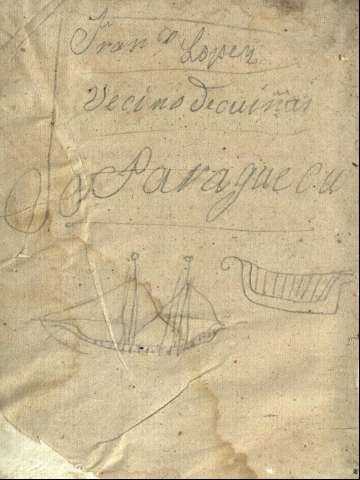 Fran.co Lopez
Vecino decuiñas
Para que cu